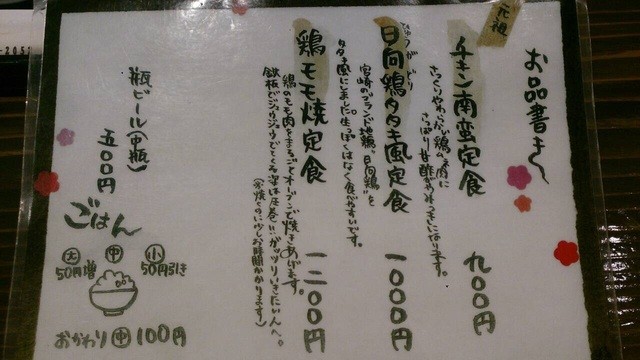 お品書き
元祖
チキン南蛮定食 九〇〇円
さっくりやわらかい鶏むね肉に
さっぱり甘酢がやみつきになります。
ひゅうがどり
日向鶏タタキ風定食 一〇〇〇円
宮崎のブランド地鶏"日向鶏"を
タタキ風にしました。生っぽくはなく食べやすいです。
鶏モモ焼定食 一二〇〇円
鶏のモモ肉をまるごとオーブンで焼きあげます。
鉄板でジュウジュウでてくる姿は圧巻!!ガッツリいきたい人へ。
(※焼くのに少しお時間かかります)
瓶ビール(中瓶)
五〇〇円
ごはん
大 50円増
中
小 50円引き
おかわり中100円